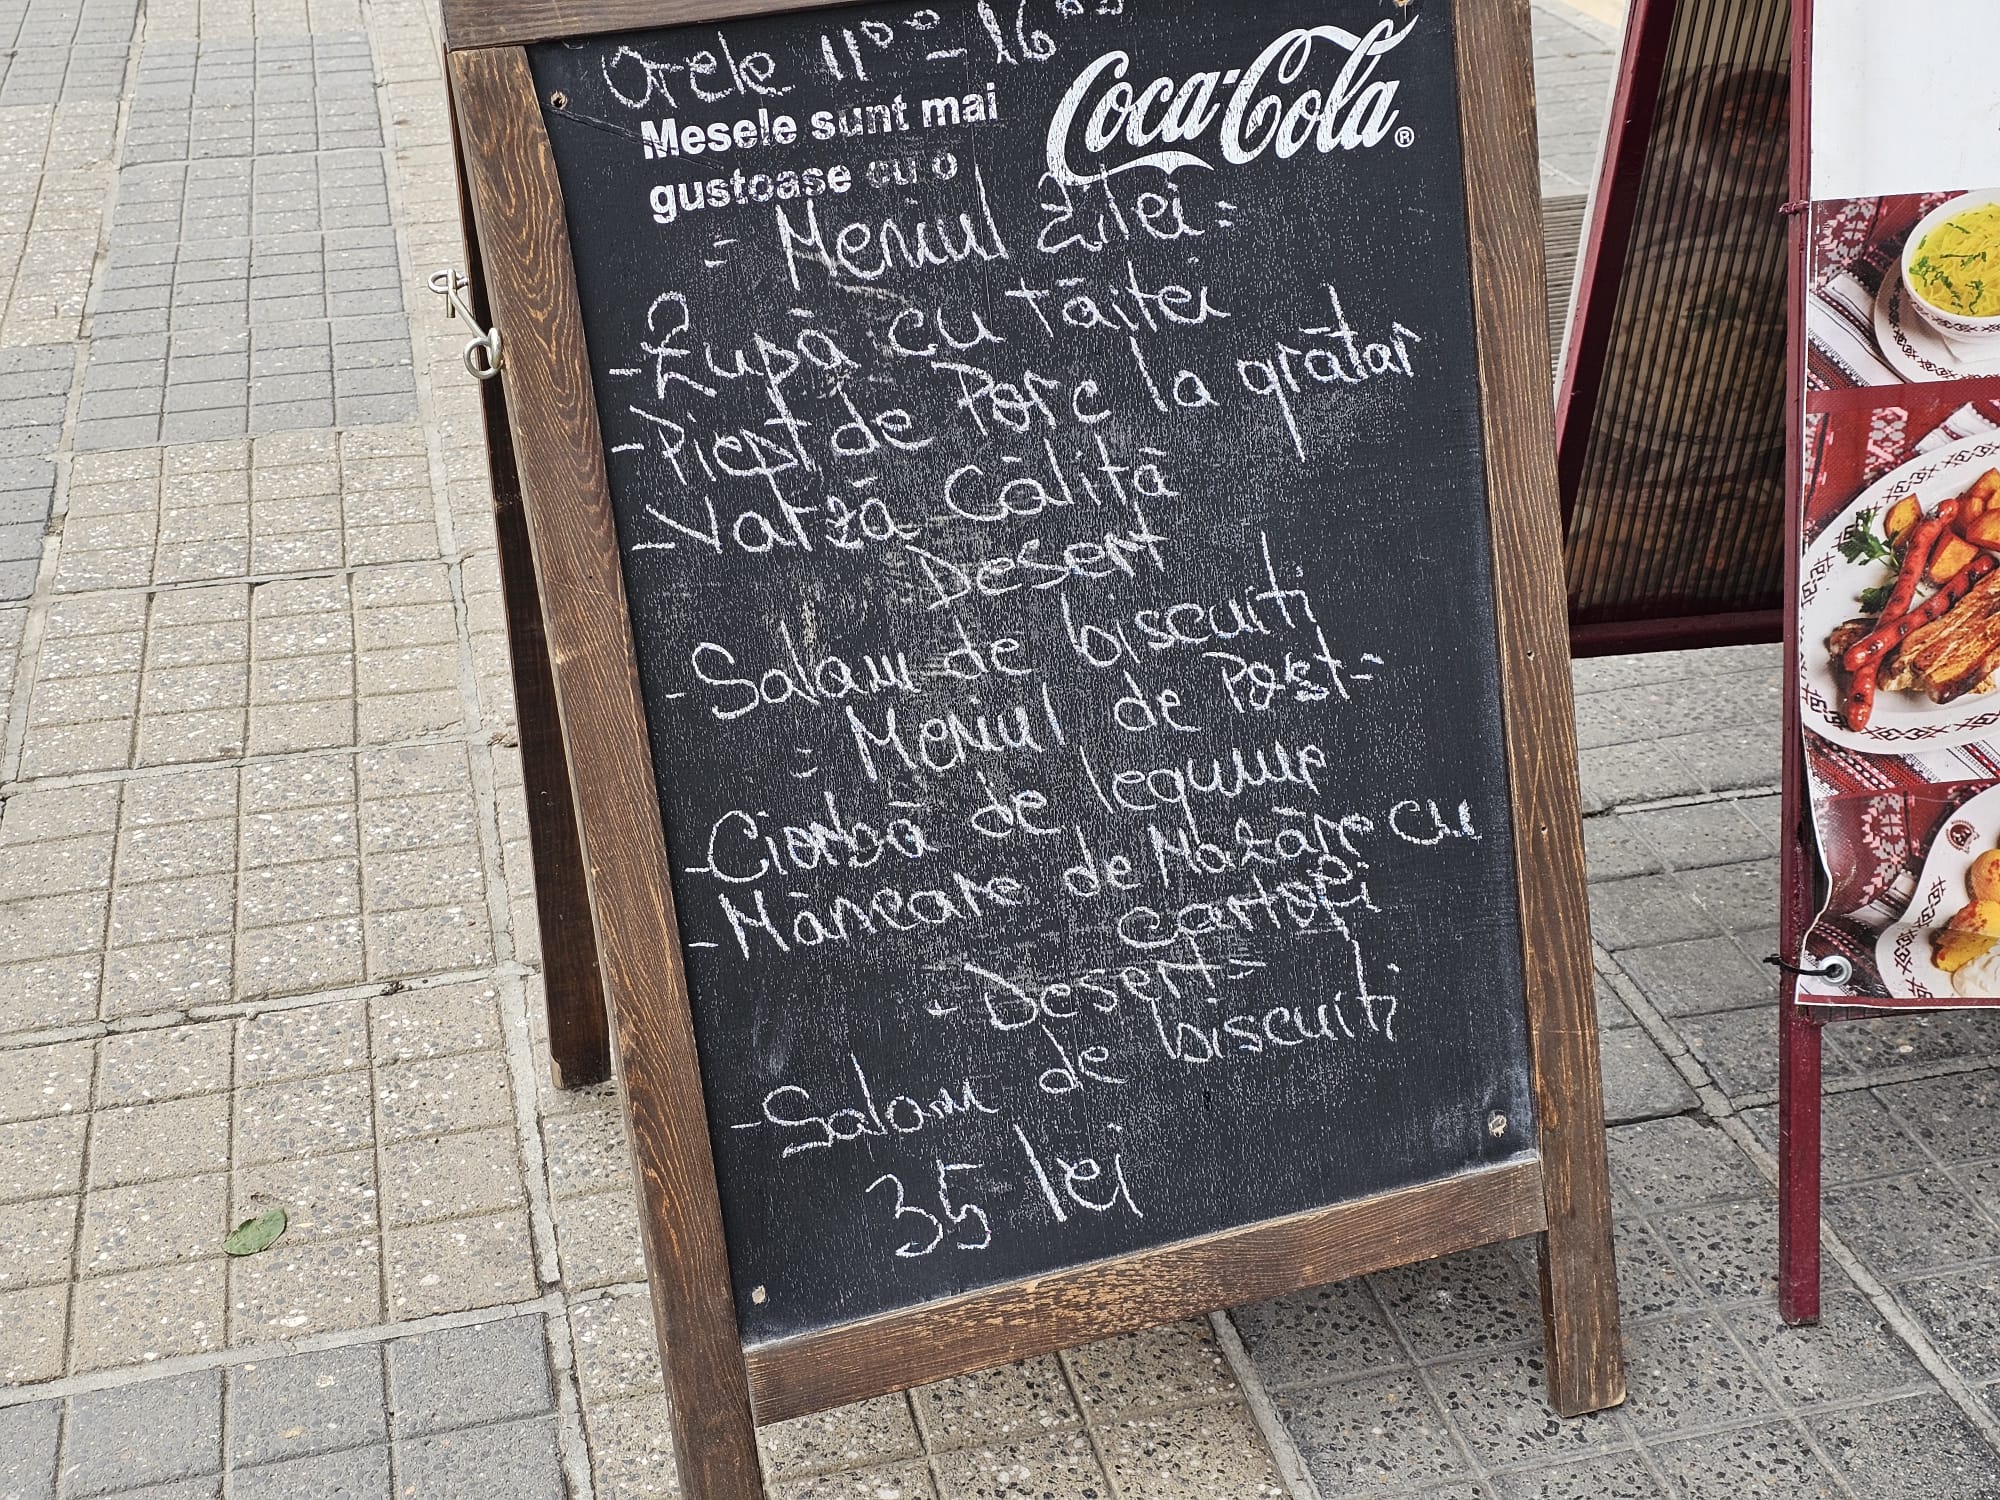 Orele 11°° - 16°°
Mesele sunt mai
gustoase cu o
Coca-Cola®
= Meniul Zilei =
- Zupă cu tăiței
- Piept de Porc la grătar
- Varză Călită
Desert
- Salam de biscuiți
= Meniul de Post =
- Ciorbă de legume
- Mâncare de Mazăre cu
cartofi
- Desert -
- Salam de biscuiți
35 lei